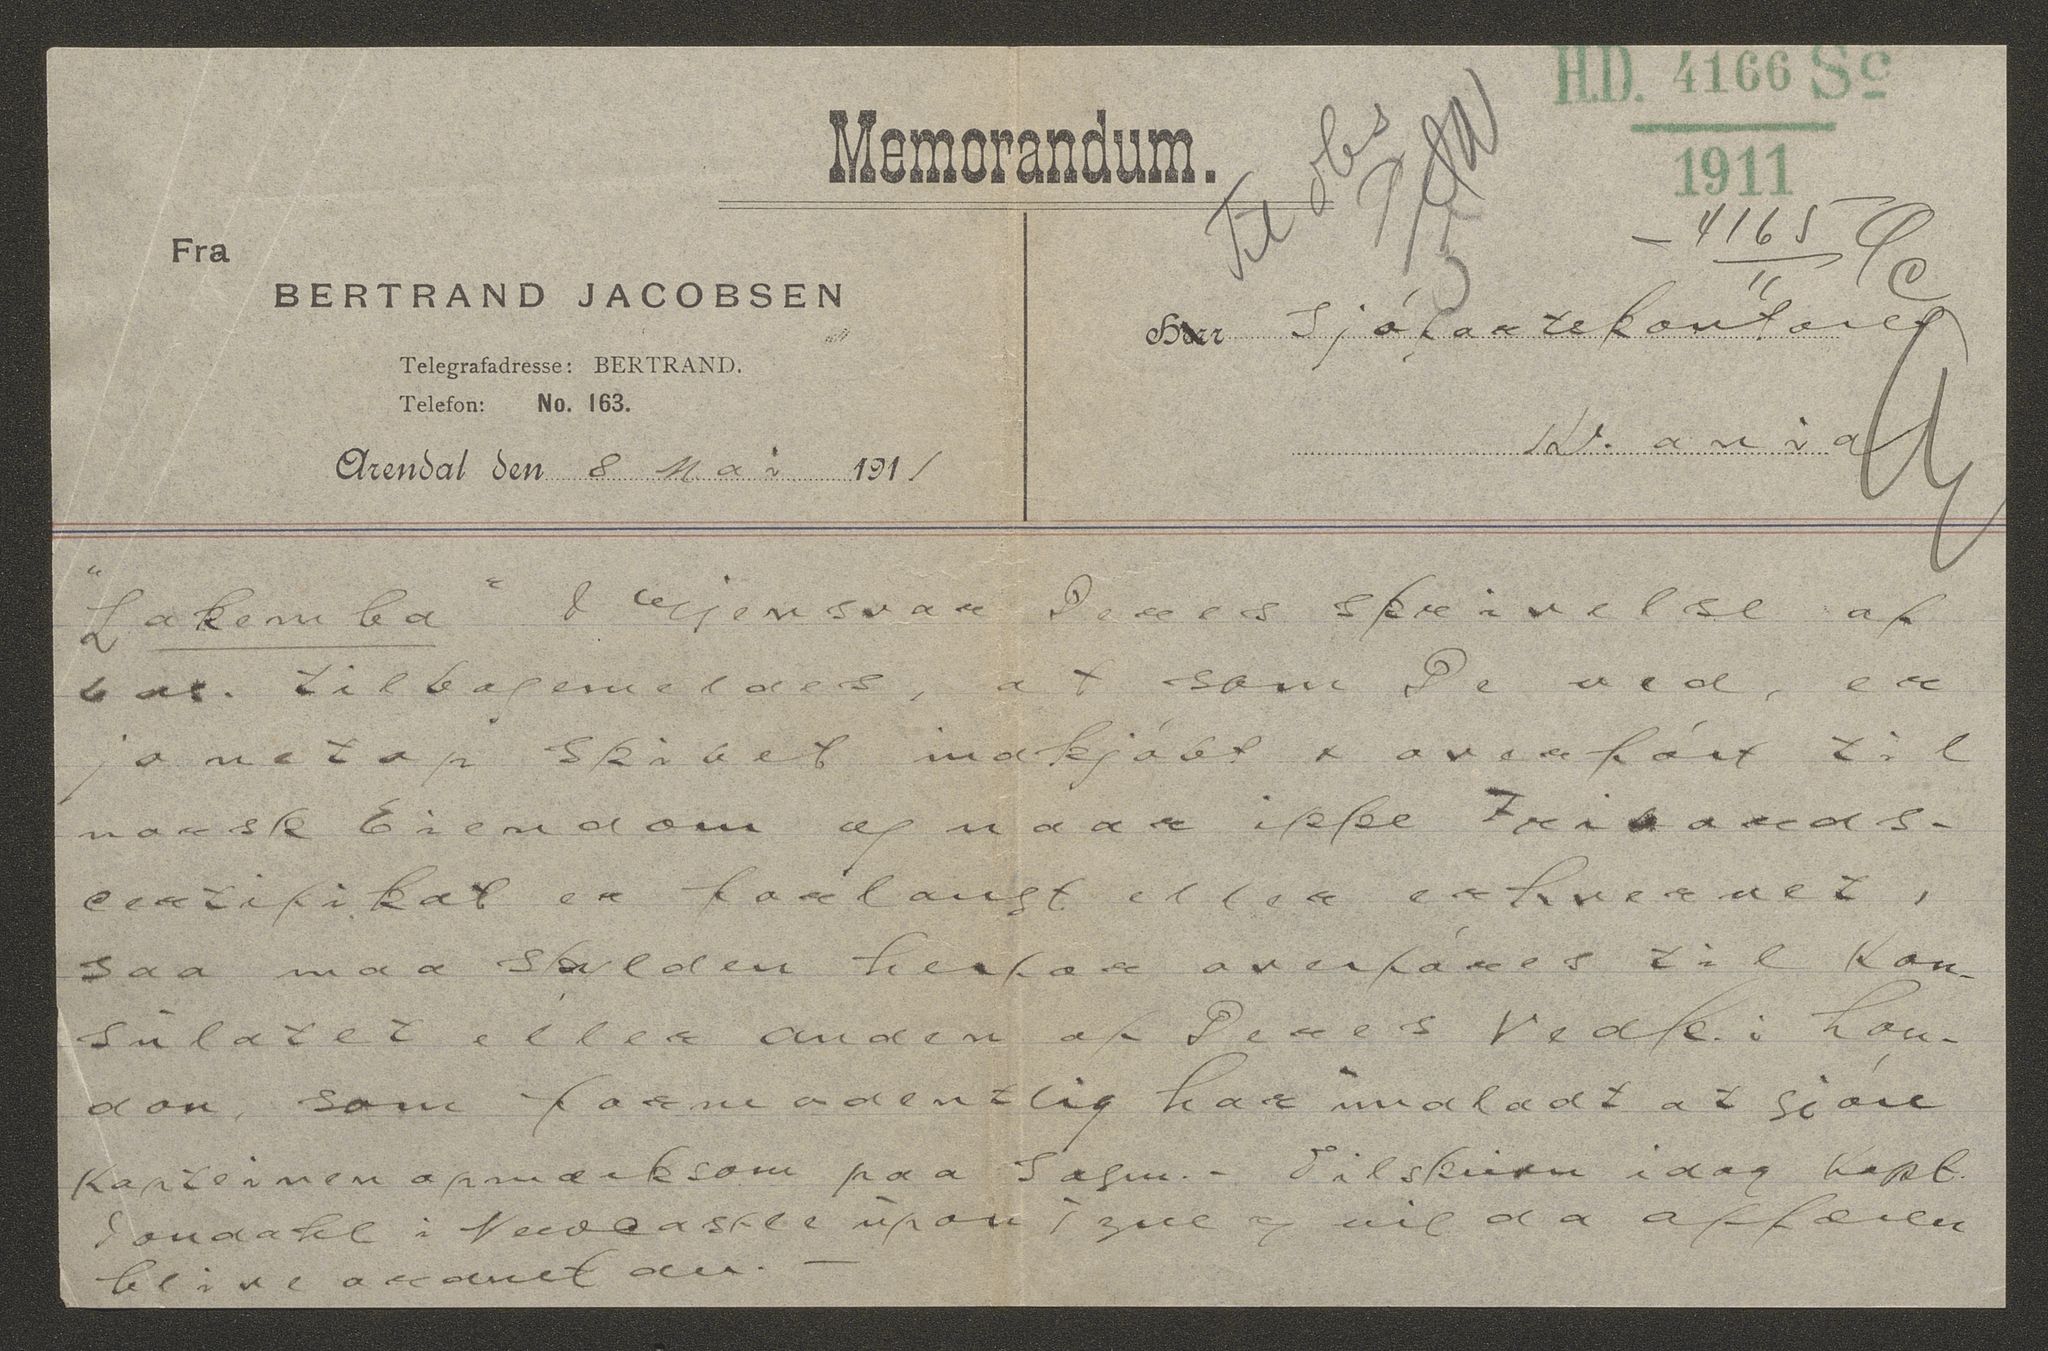 H.D. 4166 Sc
1911
Memorandum.
Til obs
- 4165
11
Fra
BERTRAND JACOBSEN
Telegrafadresse: BERTRAND.
Telefon: No. 163.
Arendal den 8 Mai 1911
Herr Sjófartskontoret
Kr.ania
"Lakemba" I Gjensvar Deres skrivelse af
tilbagemeldes, at som De ved, er
jo netop skibet indkjóbt & overfórt til
norsk Eiendom og naar ikke Fribords-
certifikat er forlangt eller erhvervet,
saa maa skylden herfor overfóres til Kon-
sulatet eller anden af Deres Vedk. i Lon-
don, som formodentlig har undladt at gjóre
Kapteinen opmærksom paa Sagen. - Tilskriver idag Kapt.
Tondahl i Newcastle upon Tyne og vil da affæren
blive ordnet der. -